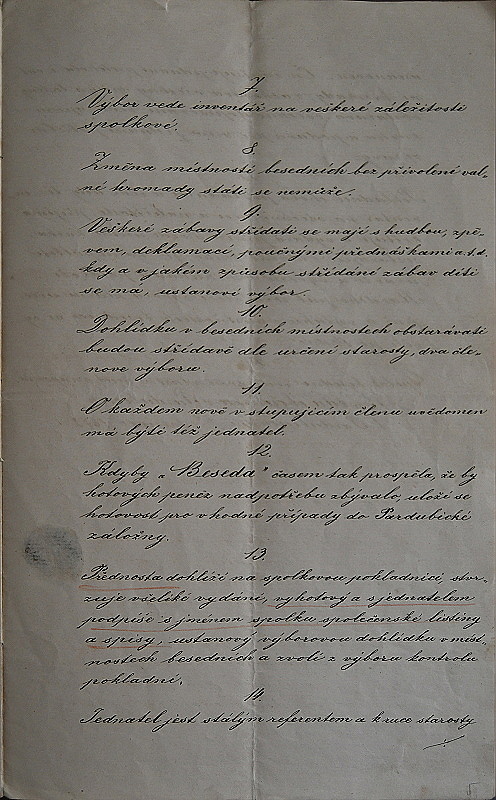 7.
Výbor vede inventář na veškeré záležitosti
spolkové.
8
Změna místností besedních bez přivolení val-
né hromady státi se nemůže.
9.
Veškeré zábavy střídati se mají s hudbou, zpě-
vem, deklamací, poučnými přednáškami a.t.d.
kdy a v jakém způsobu střídání zábav díti
se má, ustanoví výbor.
10.
Dohlídku v besedních místnostech obstarávati
budou střídavě dle určení starosty, dva čle-
nove výboru.
11.
O každem nově vstupujícím členu uvědomen
má býti též jednatel.
12.
Kdyby „Beseda" časem tak prospěla, že by
hotových peněz nadpotřebu zbývalo, uloží se
hotovost pro vhodné případy do Pardubické
záložny.
13.
Přednosta dohlíží na spolkovou pokladnici, stvr-
zuje všeliké vydání, vyhotový a s jednatelem
podpíše s jménem spolku společenské listiny
a spisy, ustanový výborovou dohlídku v míst-
nostech besedních a zvolí z výboru kontrolu
pokladní.
14.
Jednatel jest stálým referentem a k ruce starosty